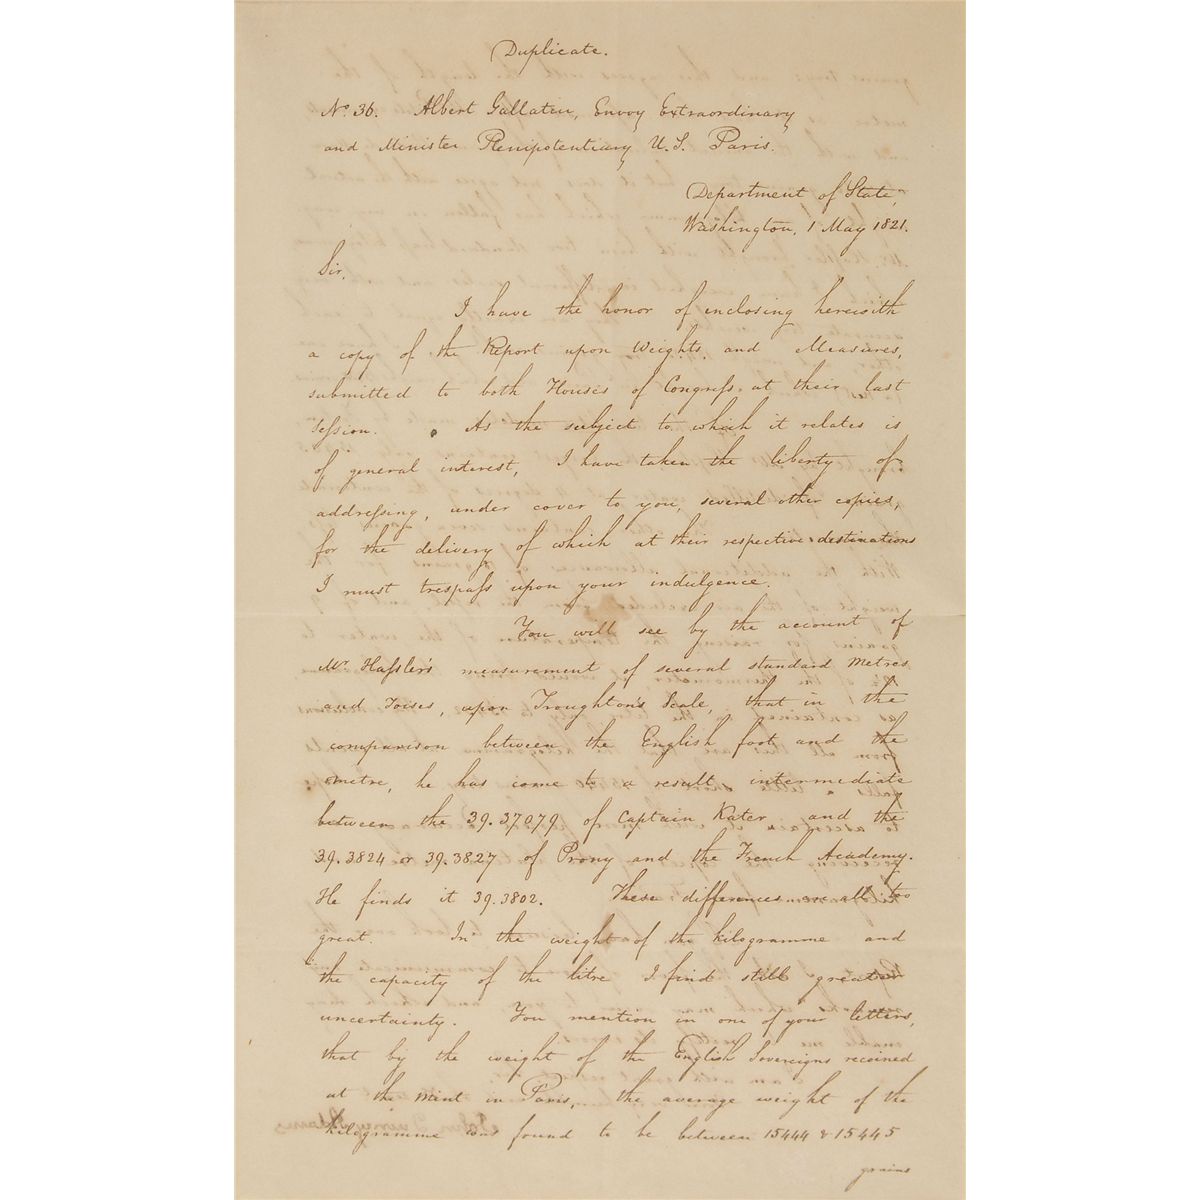 Duplicate.
No. 36. Albert Gallatin, Envoy Extraordinary
and Minister Plenipotentiary U.S. Paris.
Department of State,
Washington, 1 May 1821.
Sir.
I have the honor of inclosing herewith
a copy of the Report upon Weights, and Measures,
submitted to both Houses of Congress, at their last
session. As the subject to which it relates is
of general interest, I have taken the liberty of
addressing, under cover to you, several other copies,
for the delivery of which at their respective destinations
I must trespass upon your indulgence.
You will see by the account of
Mr. Hassler's measurement of several standard Metres
and Toises, upon Troughton's Scale, that in the
comparison between the English foot and the
metre, he has come to a result intermediate
between the 39.37079 of Captain Kater and the
39.3824 or 39.3827 of Prony and the French Academy.
He finds it 39.3802. These differences are all too
great. In the weight of the kilogramme and
the capacity of the litre I find still greater
uncertainty. You mention in one of your letters,
that by the weight of the English Sovereigns received
at the mint in Paris, the average weight of the
kilogramme was found to be between 15444 & 15445
grains